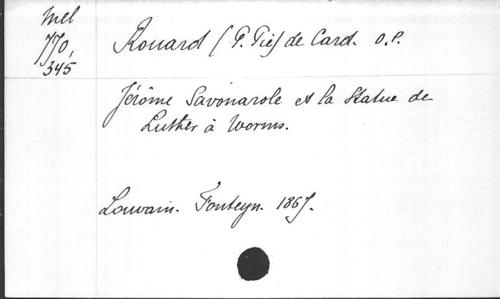 Mel
770,
345
Rouard (P. Pie) de Card. O.P.
Jérôme Savonarole et la Statue de
Luther à Worms.
Louvain. Fonteyn. 1867.